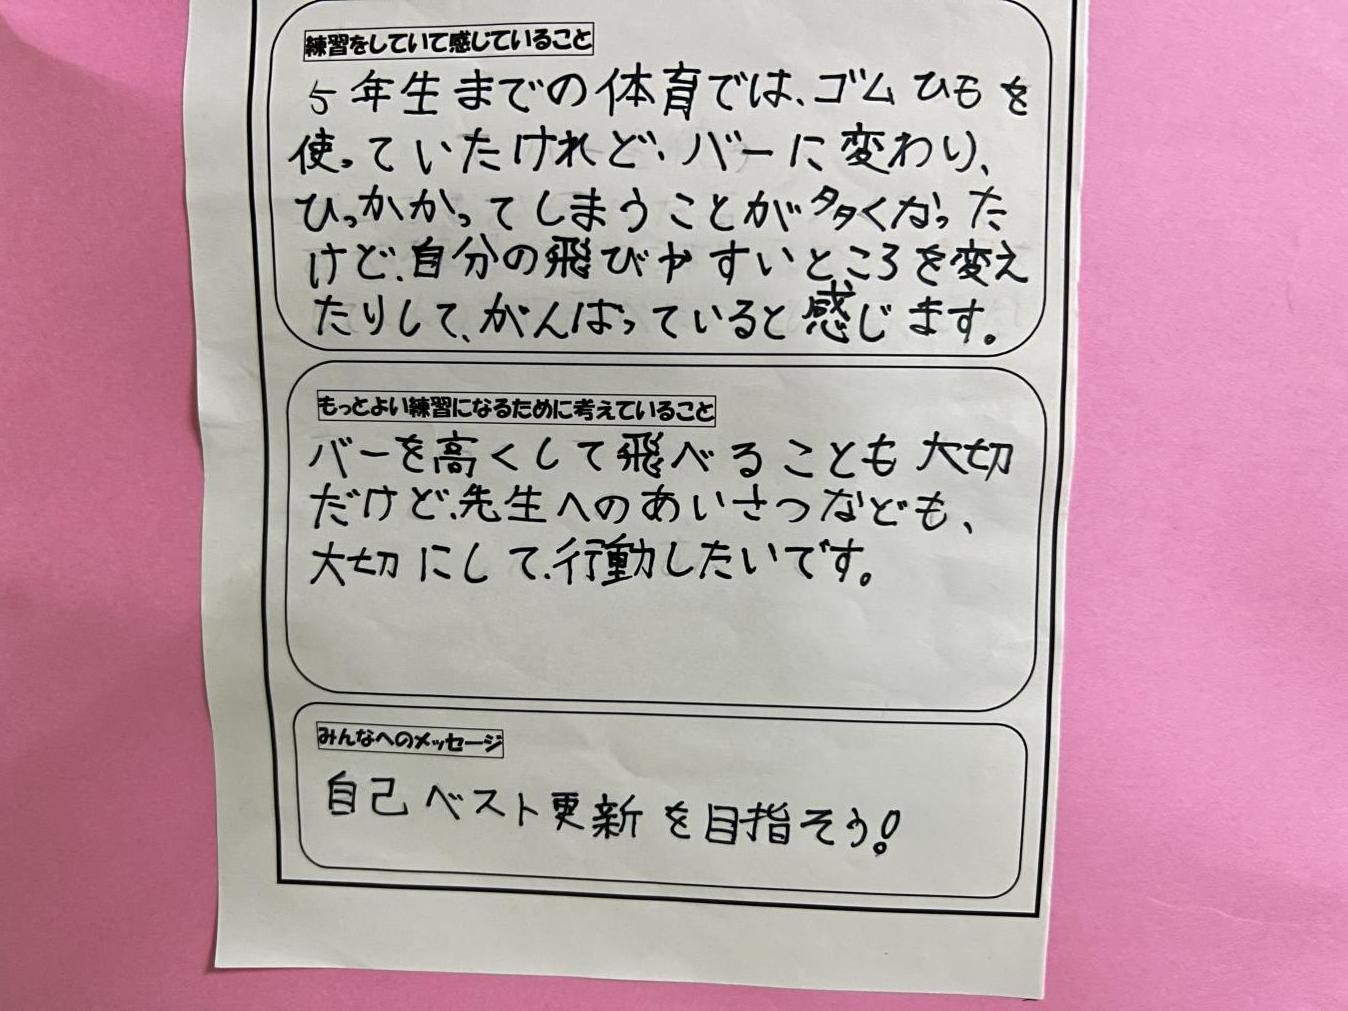 練習をしていて感じていること
5年生までの体育では、ゴムひもを
使っていたけれど、バーに変わり、
ひっかかってしまうことが多くなった
けど、自分の飛びやすいところを変え
たりして、がんばっていると感じます。
もっとよい練習になるために考えていること
バーを高くして飛べることも大切
だけど、先生へのあいさつなども、
大切にして、行動したいです。
みんなへのメッセージ
自己ベスト更新を目指そう!